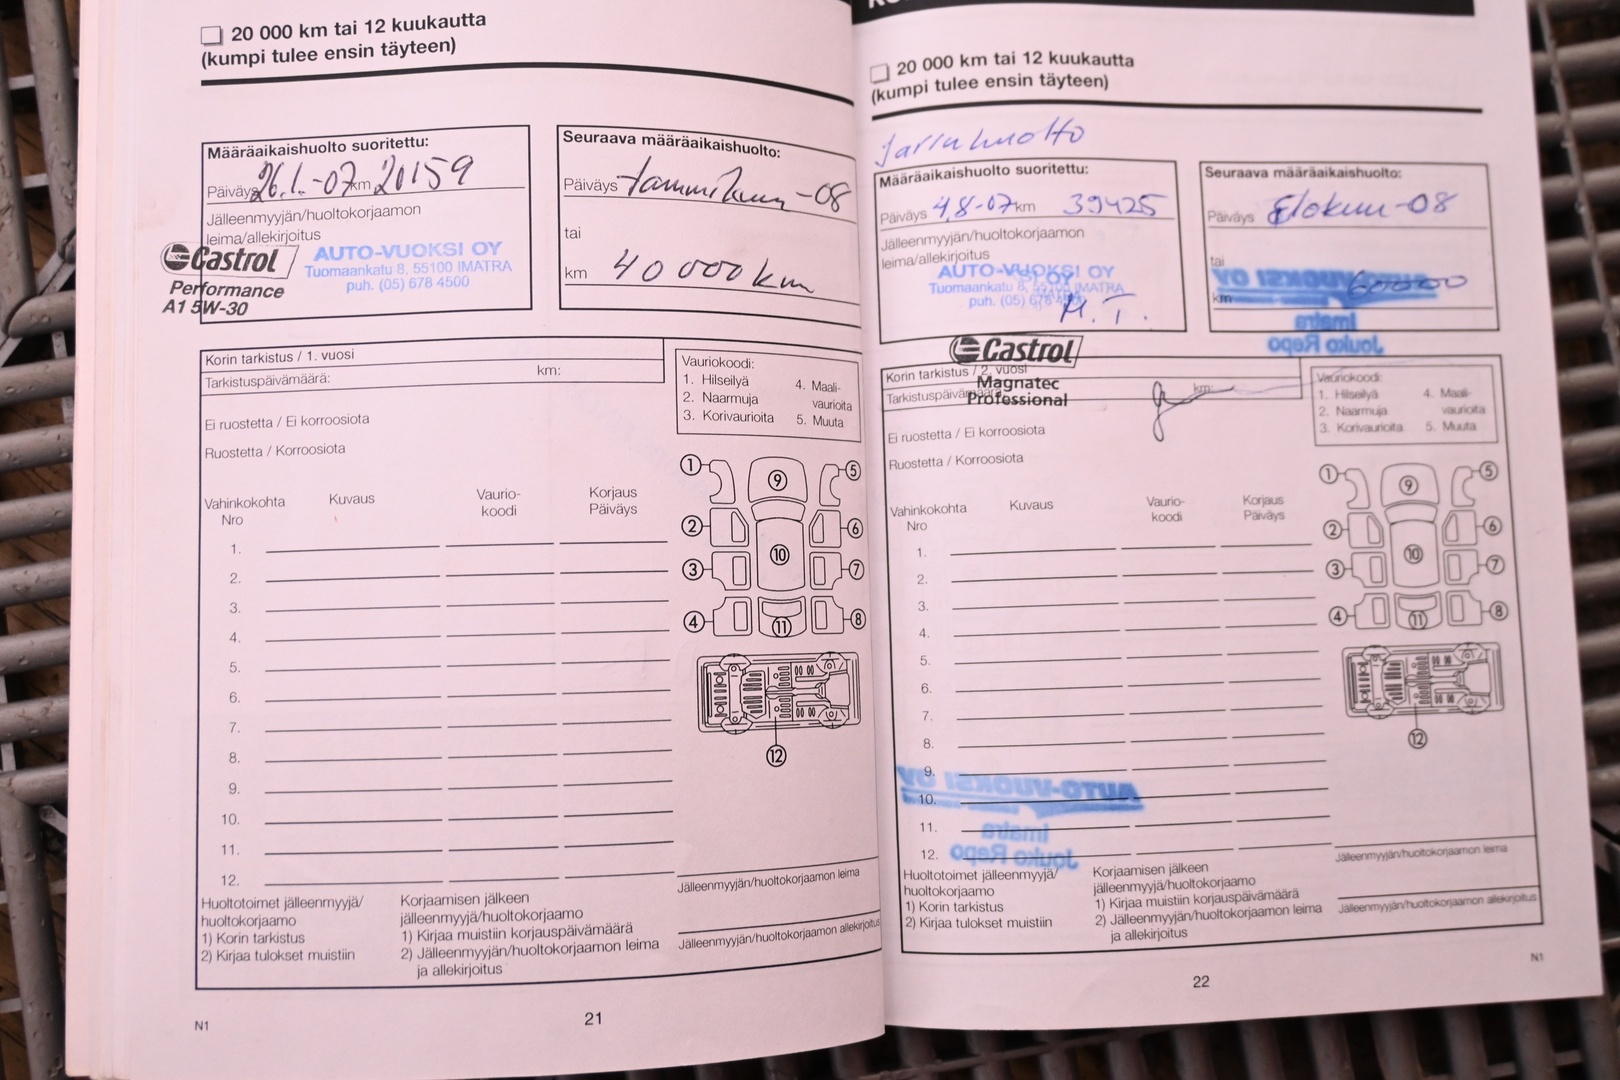 20 000 km tai 12 kuukautta
(kumpi tulee ensin täyteen)
Määräaikaishuolto suoritettu:
Päiväys 26.1.-07 km 20159
Jälleenmyyjän/huoltokorjaamon
leima/allekirjoitus
Castrol
Performance
A1 5W-30
AUTO-VUOKSI OY
Tuomaankatu 8, 55100 IMATRA
puh. (05) 678 4500
Seuraava määräaikaishuolto:
Päiväys tammikuu-08
tai
km 40 000 km
Korin tarkistus / 1. vuosi
Tarkistuspäivämäärä: km:
Ei ruostetta / Ei korroosiota
Ruostetta / Korroosiota
Vauriokoodi:
1. Hilseilyä
2. Naarmuja
3. Korivaurioita
4. Maali-
vaurioita
5. Muuta
Vahinkokohta
Nro
Kuvaus
Vaurio-
koodi
Korjaus
Päiväys
1.
2.
3.
4.
5.
6.
7.
8.
9.
10.
11.
12.
1
2
3
4
5
6
7
8
9
10
11
12
Huoltotoimet jälleenmyyjä/
huoltokorjaamo
1) Korin tarkistus
2) Kirjaa tulokset muistiin
Korjaamisen jälkeen
jälleenmyyjä/huoltokorjaamo
1) Kirjaa muistiin korjauspäivämäärä
2) Jälleenmyyjän/huoltokorjaamon leima
ja allekirjoitus
Jälleenmyyjän/huoltokorjaamon leima
Jälleenmyyjän/huoltokorjaamon allekirjoitus
N1
21
20 000 km tai 12 kuukautta
(kumpi tulee ensin täyteen)
Jarruhuolto
Määräaikaishuolto suoritettu:
Päiväys 4,8-07 km 39425
Jälleenmyyjän/huoltokorjaamon
leima/allekirjoitus
AUTO-VUOKSI OY
Tuomaankatu 8, 55100 IMATRA
puh. (05) 678 4500
M.T.
Castrol
Magnatec
Professional
Seuraava määräaikaishuolto:
Päiväys Elokuu-08
tai
km 60000
AUTO-VUOKSI OY
Imatra
Jouko Repo
Korin tarkistus / 2. vuosi
Tarkistuspäivämäärä: km:
Ei ruostetta / Ei korroosiota
Ruostetta / Korroosiota
Vauriokoodi:
1. Hilseilyä
2. Naarmuja
3. Korivaurioita
4. Maali-
vaurioita
5. Muuta
Vahinkokohta
Nro
Kuvaus
Vaurio-
koodi
Korjaus
Päiväys
1.
2.
3.
4.
5.
6.
7.
8.
9.
10.
11.
12.
AUTO-VUOKSI OY
Imatra
Jouko Repo
1
2
3
4
5
6
7
8
9
10
11
12
Huoltotoimet jälleenmyyjä/
huoltokorjaamo
1) Korin tarkistus
2) Kirjaa tulokset muistiin
Korjaamisen jälkeen
jälleenmyyjä/huoltokorjaamo
1) Kirjaa muistiin korjauspäivämäärä
2) Jälleenmyyjän/huoltokorjaamon leima
ja allekirjoitus
Jälleenmyyjän/huoltokorjaamon leima
Jälleenmyyjän/huoltokorjaamon allekirjoitus
N1
22